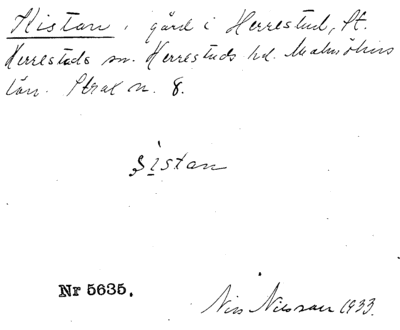 Kistan, gård i Herrestad, St.
Herrestads sn. Herrestads hd. Malmöhus
län. Skrax n. 8.
Nr 5635.
Nils Nilsson 1933.